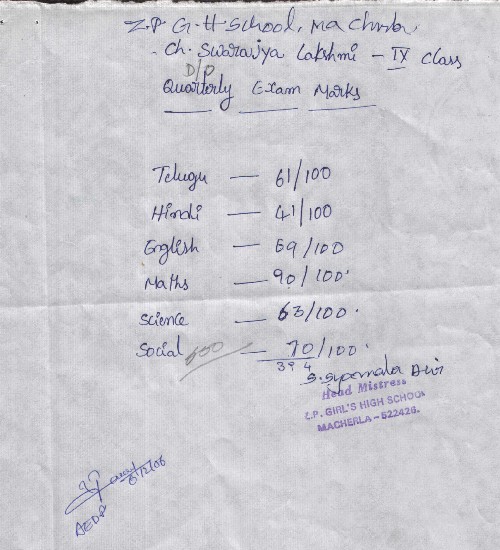 Z.P. G.H School, Macherla.
Ch. Swarajya Lakshmi - IX Class
D/P
Quarterly Exam Marks
Telugu — 61/100
Hindi — 41/100
English — 69/100
Maths — 90/100.
Science — 63/100.
Social — 70/100.
394
Head Mistress
Z.P. GIRL'S HIGH SCHOOL
MACHERLA-522426.